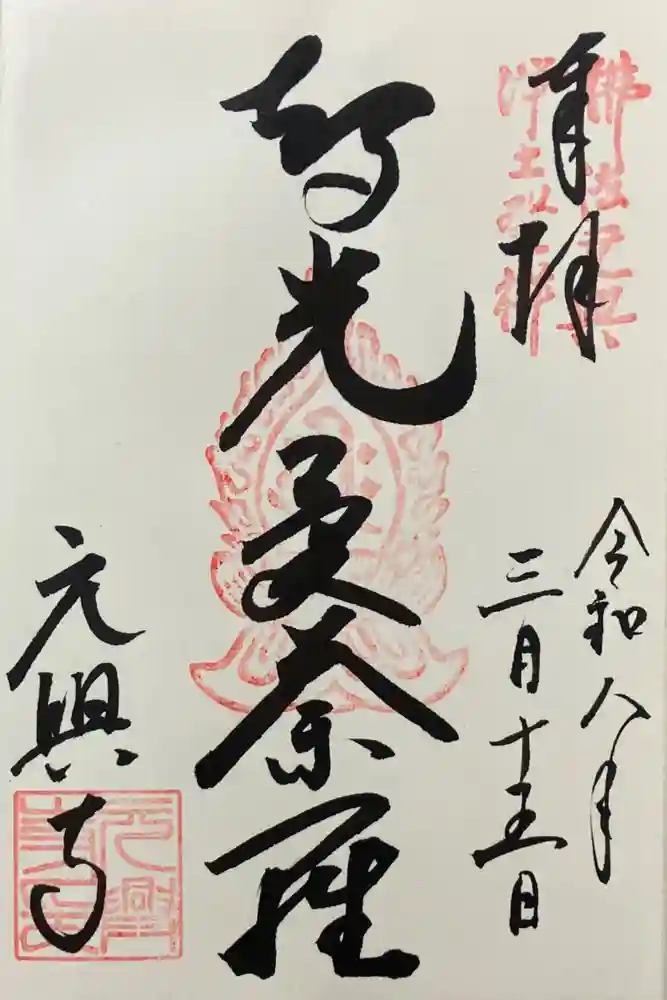 奉拝
佛法元興
浄土改釋
令和八年
三月十五日
智光曼荼羅
元興寺